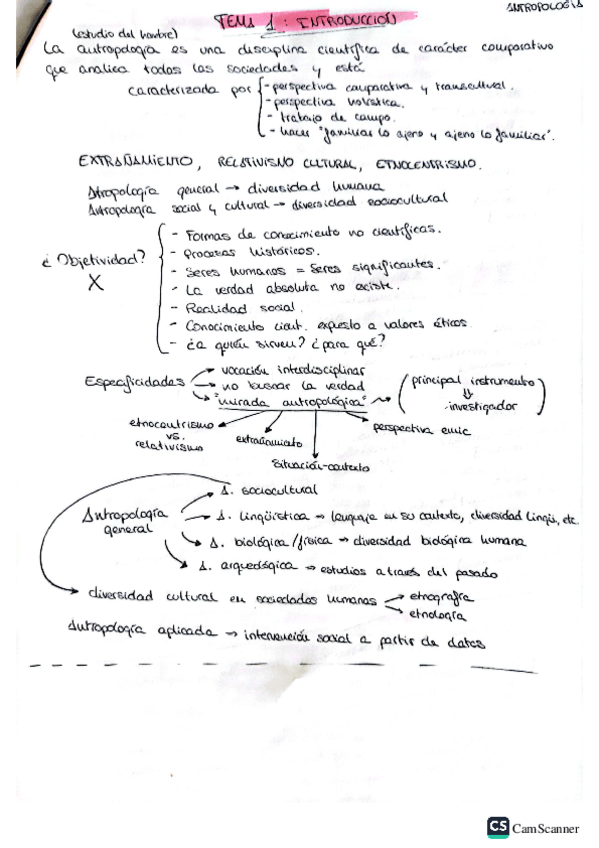 ANTROPOLOGÍA
TEMA 1: INTRODUCCIÓN
(estudio del hombre)
La antropología es una disciplina científica de carácter comparativo
que analiza todas las sociedades y está
caracterizada por
- perspectiva comparativa y transcultural.
- perspectiva holística.
- trabajo de campo.
- hacer "familiar lo ajeno y ajeno lo familiar".
EXTRAÑAMIENTO, RELATIVISMO CULTURAL, ETNOCENTRISMO.
Antropología general → diversidad humana
Antropología social y cultural → diversidad sociocultural
¿Objetividad?
X
- Formas de conocimiento no científicas.
- Procesos históricos.
- Seres humanos = Seres significantes.
- La verdad absoluta no existe.
- Realidad social.
- Conocimiento cient. expuesto a valores éticos.
- ¿a quién sirven? ¿para qué?
Especificidades
→ vocación interdisciplinar
→ no buscar la verdad
→ "mirada antropológica" → (principal instrumento
⇓
investigador)
etnocentrismo
vs.
relativismo
extrañamiento
situación-contexto
perspectiva emic
Antropología
general
→ A. sociocultural
→ A. lingüística → lenguaje en su contexto, diversidad lingüís, etc.
→ A. biológica/física → diversidad biológica humana
→ A. arqueológica → estudios a través del pasado
→ diversidad cultural en sociedades humanas
→ etnografía
→ etnología
Antropología aplicada → intervención social a partir de datos
CS CamScanner